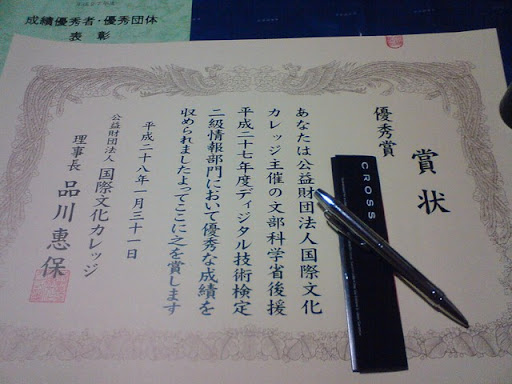 成績優秀者・優秀団体
表彰
賞状
優秀賞
あなたは公益財団法人国際文化
カレッジ主催の文部科学省後援
平成二十七年度ディジタル技術検定
二級情報部門において優秀な成績を
収められましたよってここに之を賞します
平成二十八年一月三十一日
公益財団法人 国際文化カレッジ
理事長 品川惠保
CROSS